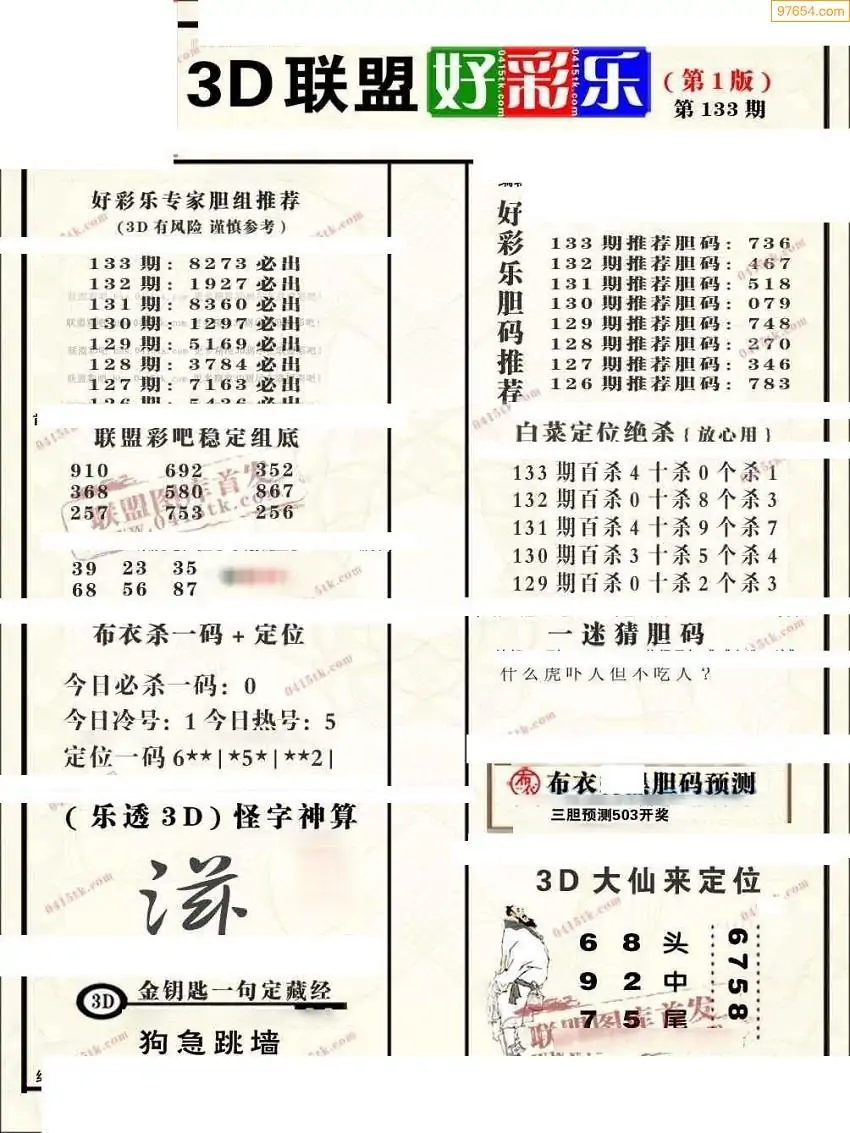 97654.com
3D联盟好彩乐
(第1版)
第133期
好彩乐专家胆组推荐
(3D有风险 谨慎参考)
133期: 8273必出
132期: 1927必出
131期: 8360必出
130期: 1297必出
129期: 5169必出
128期: 3784必出
127期: 7163必出
联盟彩吧稳定组底
910 692 352
368 580 867
257 753 256
39 23 35
68 56 87
布衣杀一码+定位
今日必杀一码: 0
今日冷号: 1 今日热号: 5
定位一码6**|*5*|**2|
(乐透3D)怪字神算
滋
3D 金钥匙一句定藏经
狗急跳墙
好彩乐胆码推荐
133期推荐胆码: 736
132期推荐胆码: 467
131期推荐胆码: 518
130期推荐胆码: 079
129期推荐胆码: 748
128期推荐胆码: 270
127期推荐胆码: 346
126期推荐胆码: 783
白菜定位绝杀{放心用}
133期百杀4十杀0个杀1
132期百杀0十杀8个杀3
131期百杀4十杀9个杀7
130期百杀3十杀5个杀4
129期百杀0十杀2个杀3
一迷猜胆码
什么虎吓人但不吃人?
布衣 胆码预测
三胆预测503开奖
3D大仙来定位
6 8 头
9 2 中
7 5 尾
6758
联盟图库首发
www.0415tk.com
0415tk.com